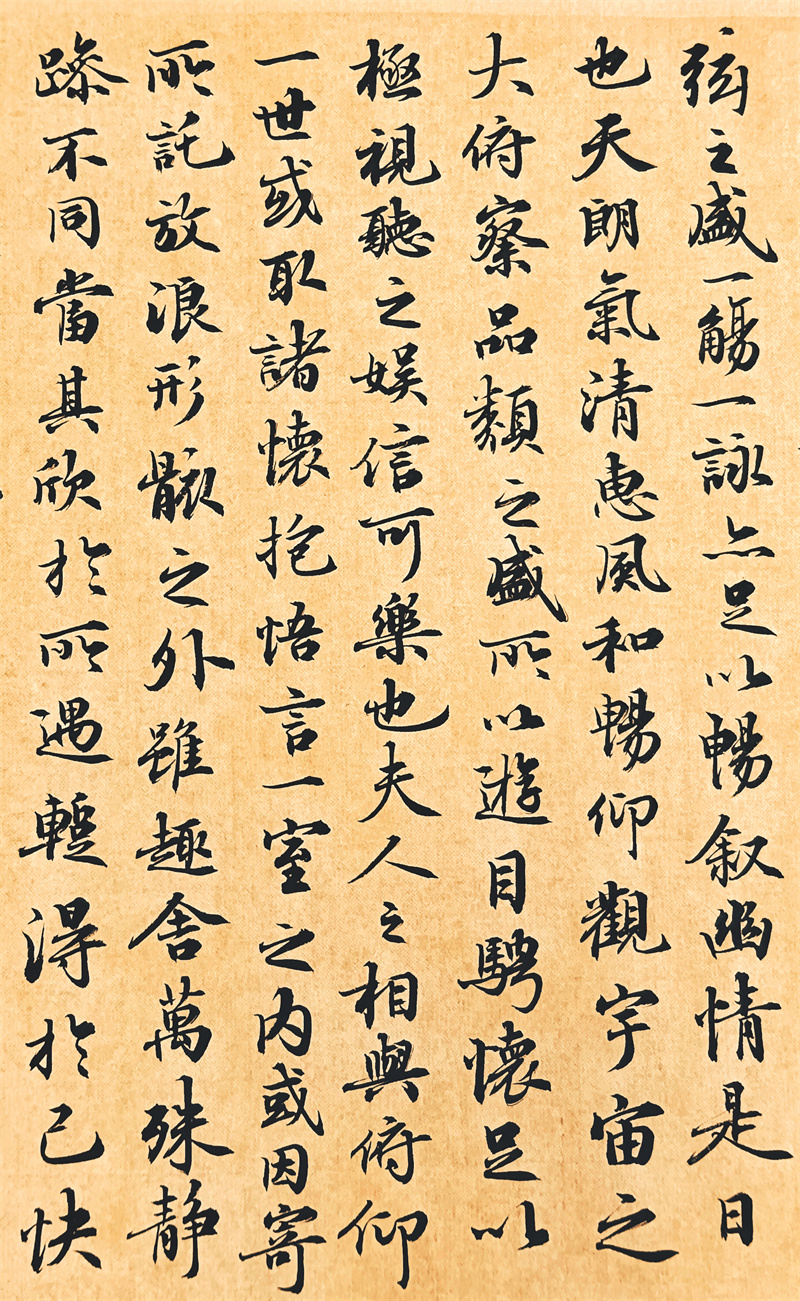 弦之盛一觴一詠亦足以暢叙幽情是日
也天朗氣清惠風和暢仰觀宇宙之
大俯察品類之盛所以遊目騁懷足以
極視聽之娛信可樂也夫人之相與俯仰
一世或取諸懷抱悟言一室之内或因寄
所託放浪形骸之外雖趣舍萬殊静
躁不同當其欣於所遇蹔得於己快